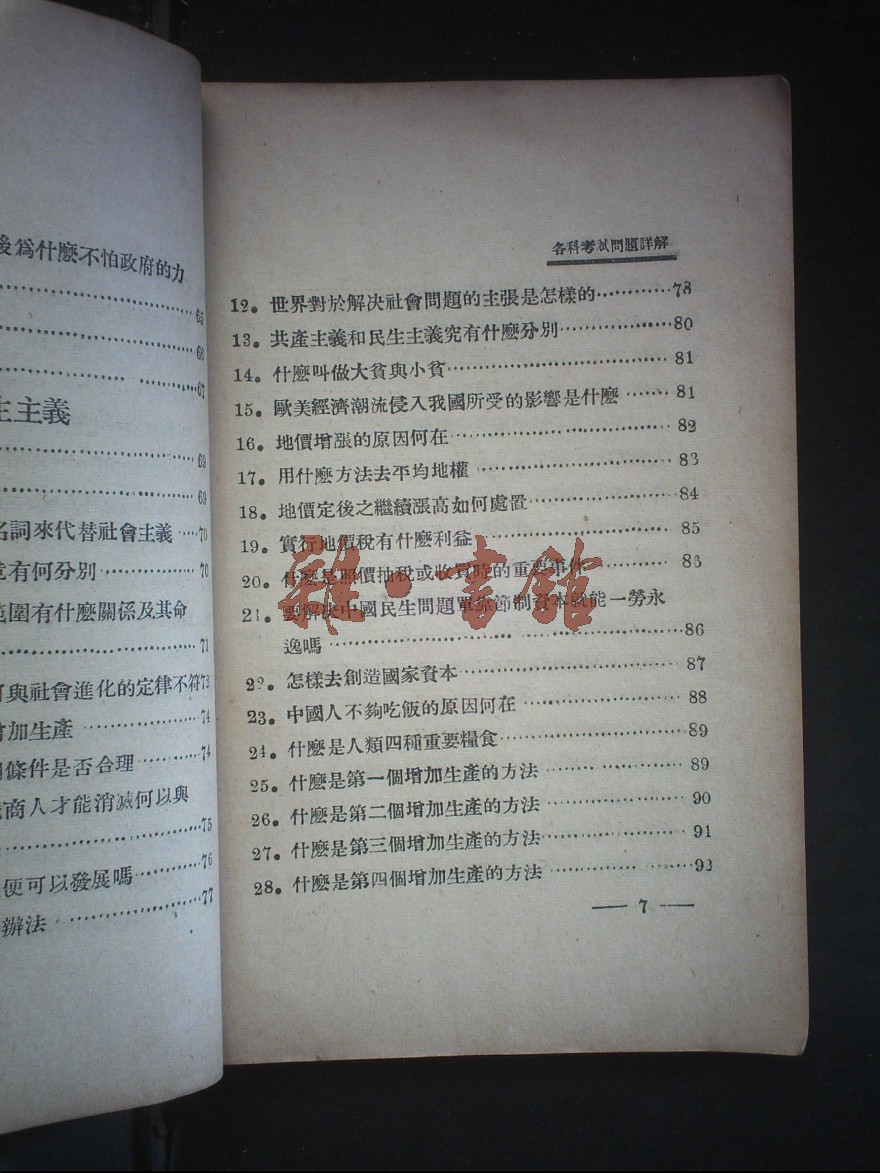 後爲什麽不怕政府的力
……65
……66
……67
生主義
……69
……69
名詞來代替社會主義……70
竟有何分別……70
範圍有什麽關係及其命
……71
可與社會進化的定律不符73
增加生產……74
條件是否合理……74
商人才能消滅何以與
……75
便可以發展嗎……76
辦法……77
各科考試問題詳解
12。世界對於解决社會問題的主張是怎樣的……78
13。共產主義和民生主義究有什麽分別……80
14。什麽叫做大貧與小貧……81
15。歐美經濟潮流侵入我國所受的影響是什麽……81
16。地價增漲的原因何在……82
17。用什麽方法去平均地權……83
18。地價定後之繼續漲高如何處置……84
19。實行地價稅有什麽利益……85
20。什麽是照價抽稅或收買時的重要事件……86
21。要解决中國民生問題單靠節制資本就能一勞永
逸嗎……86
22。怎樣去創造國家資本……87
23。中國人不夠吃飯的原因何在……88
24。什麽是人類四種重要糧食……89
25。什麽是第一個增加生產的方法……89
26。什麽是第二個增加生產的方法……90
27。什麽是第三個增加生產的方法……91
28。什麽是第四個增加生產的方法……93
— 7 —
雜·書館